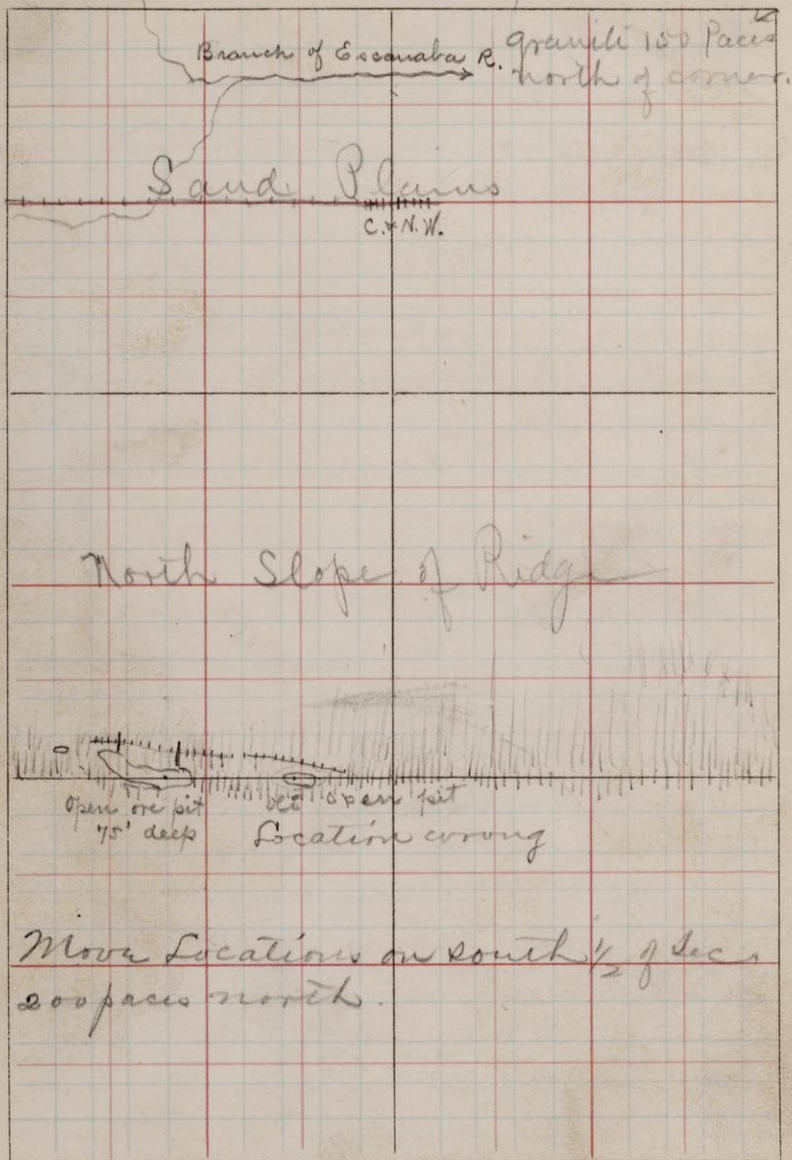 Branch of Escanaba R.
granite 150 Paces
north of corner.
Sand Plains
C. & N. W.
North Slope of Ridge
Open ore pit
75' deep
old open pit
Location wrong
Move Locations on south 1/2 of Sec
200 paces north.